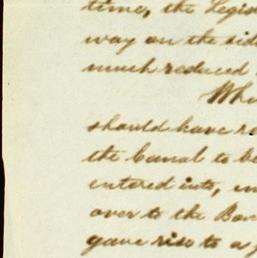 time, the Legis
way on the sid
much reduced
Whe
should have re
the Canal to be
entered into, in
over to the Boa
gave rise to a